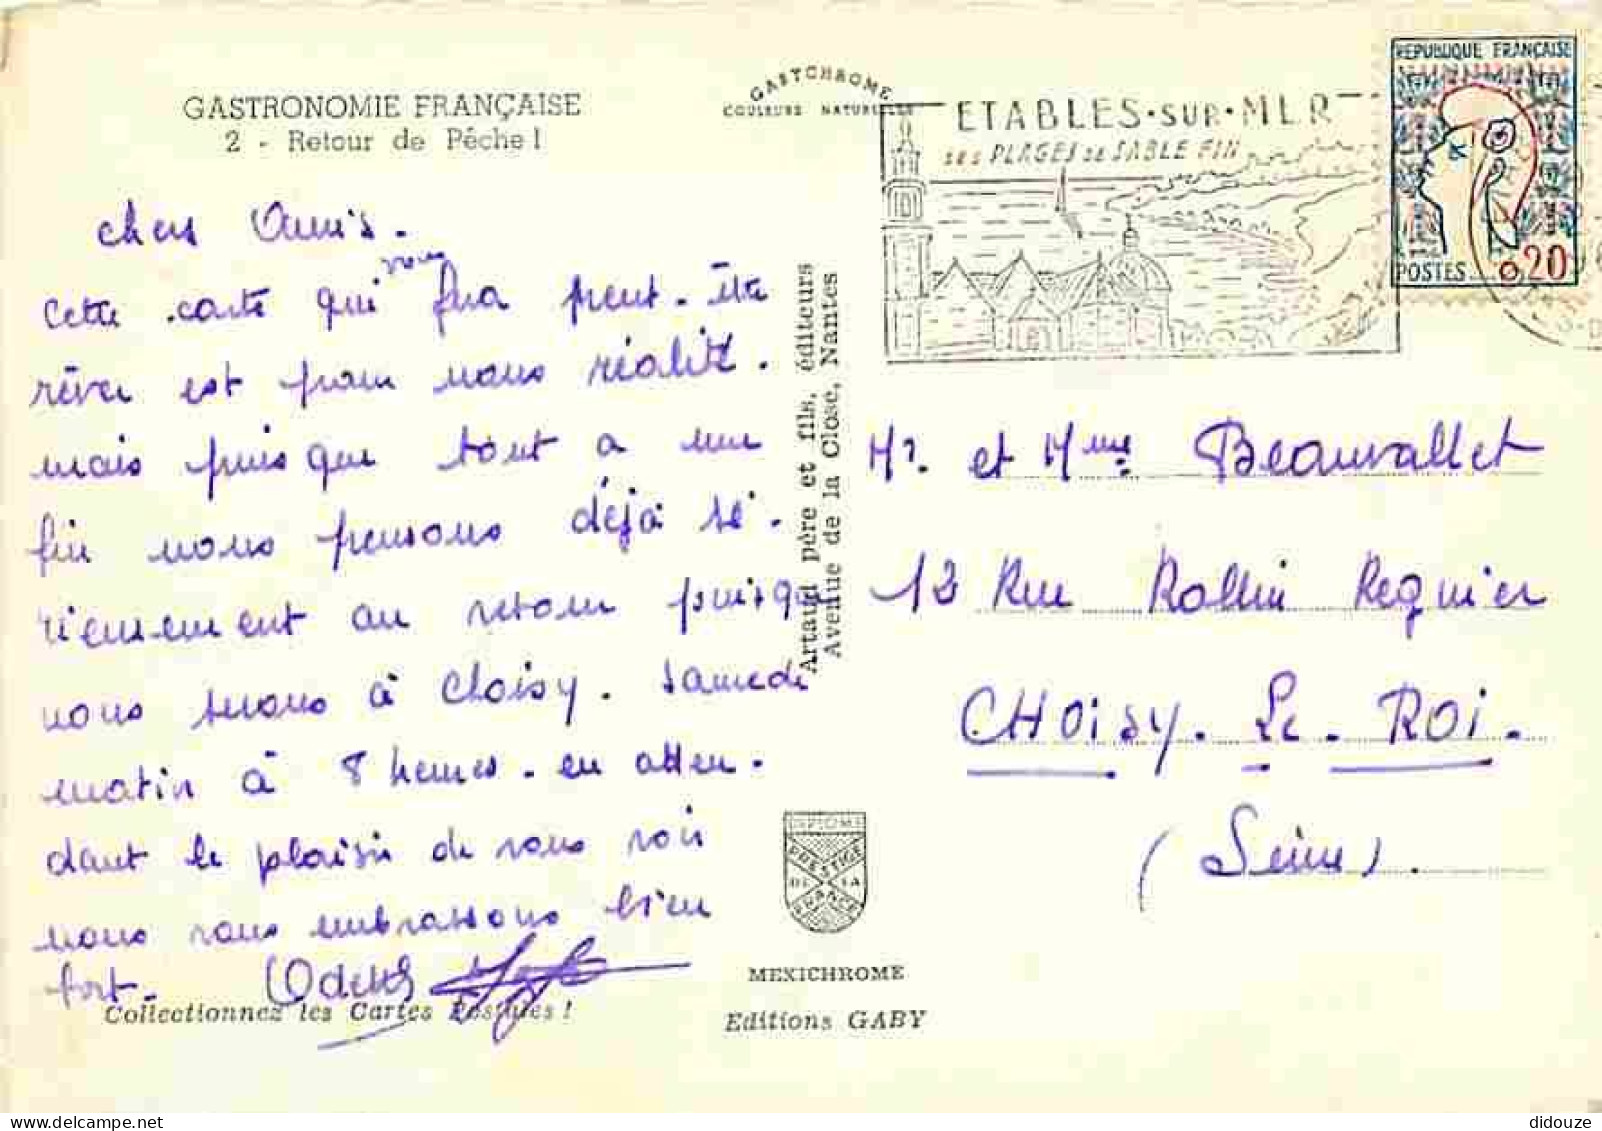 GASTRONOMIE FRANÇAISE
2 - Retour de Pêche !
GABYCHROME
COULEURS NATURELLES
ETABLES·SUR·MER
SES PLAGES DE SABLE FIN
REPUBLIQUE FRANÇAISE
POSTES 0.20
chers Amis.
vous
cette carte qui fera peut-être
rêver est pour nous réalité.
mais puisque tout a une
fin nous pensons déjà sé-
rieusement au retour puisque
nous serons à Choisy. Samedi
matin à 8 heures. en atten-
dant le plaisir de vous voir
nous vous embrassons bien
fort. Odette
Collectionnez les Cartes Postales !
Artaud père et fils, éditeurs
Avenue de la Close, Nantes
Mr. et Mme Beauvallet
12 Rue Rollin Regnier
CHOiSY. Le. ROi.
(Seine).
DIPLOME
PRESTIGE
DE LA
FRANCE
MEXICHROME
Editions GABY
didouze @ delcampe.net